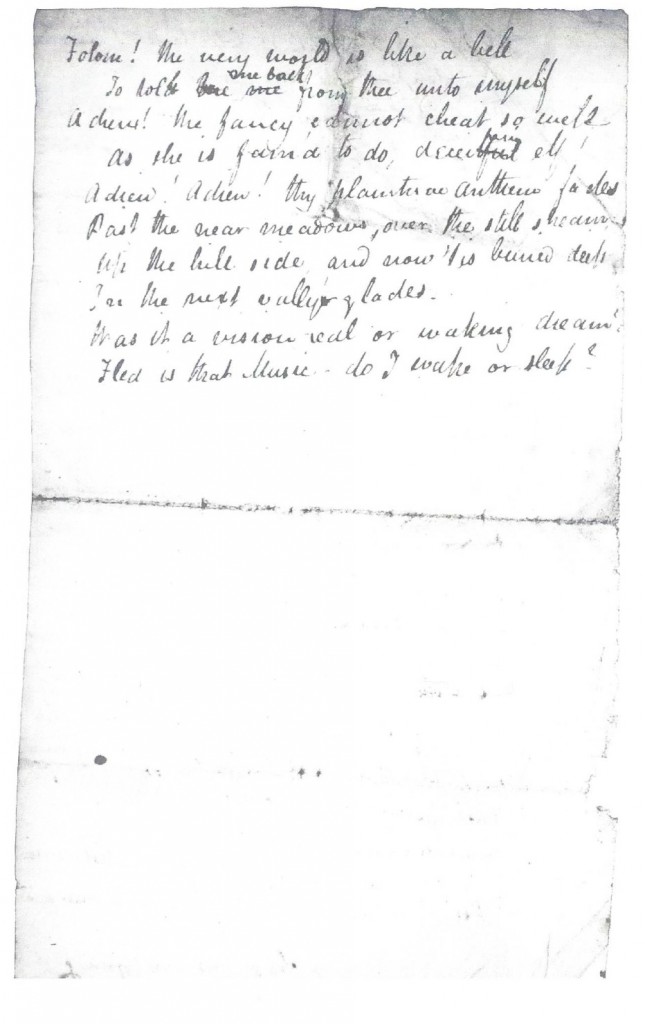 Folorn! the very world is like a bell
To toll me back from thee unto myself
Adieu! the fancy cannot cheat so well
As she is fam'd to do, deceiving elf!
Adieu! Adieu! thy plaintive anthem fades
Past the near meadows, over the still stream
Up the hill side, and now 'tis buried deep
In the next vally's glades.
Was it a vision real or waking dream?
Fled is that Music - do I wake or sleep?